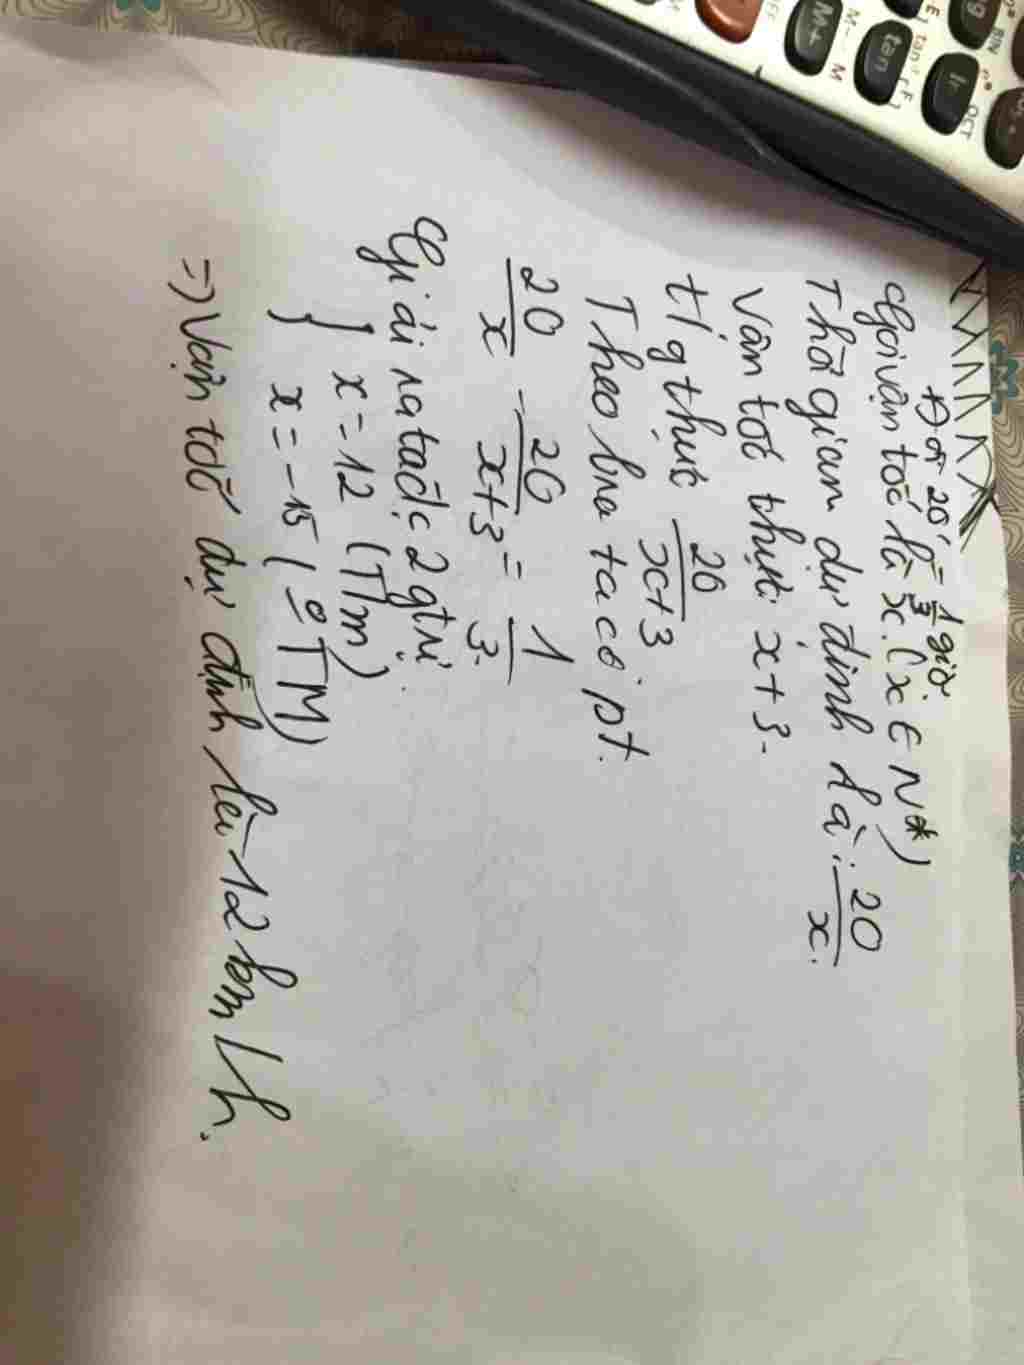 Đổi 20' = 1/3 giờ
Gọi vận tốc là x. (x ∈ N*)
Thời gian dự định là: 20/x.
Vận tốc thực: x+3.
t/g thực 20/x+3
Theo bra ta có pt.
20/x - 20/x+3 = 1/3.
Giải ra ta đc 2 gtrị.
} x = 12 (Tm)
x = -15 (0 TM)
=) Vận tốc dự định là 12 km/h.
M+
M- M
tan
tan⁻¹ F]
ln
eˣ
OCT
BIN
E
OFF